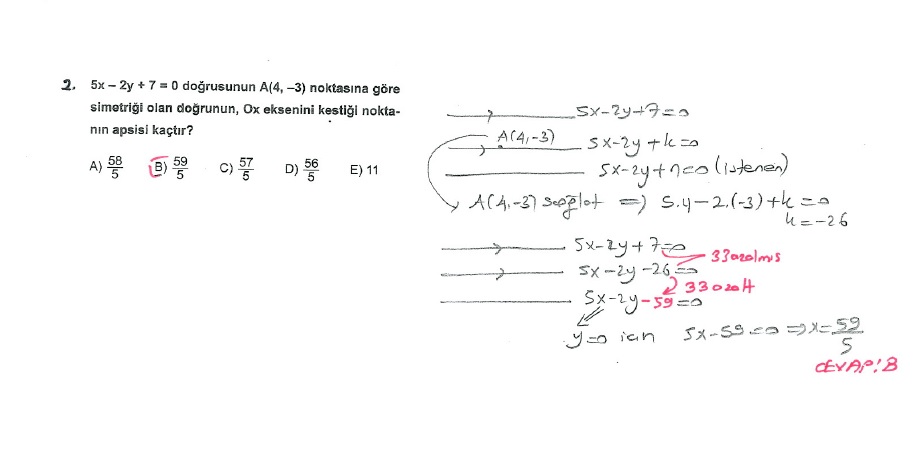 2. 5x – 2y + 7 = 0 doğrusunun A(4, –3) noktasına göre
simetriği olan doğrunun, Ox eksenini kestiği nokta-
nın apsisi kaçtır?
A) 58/5 B) 59/5 C) 57/5 D) 56/5 E) 11
5x-2y+7=0
A(4,-3) 5x-2y+k=0
5x-2y+n=0 (istenen)
A(4,-3) sağlat => 5.4-2.(-3)+k=0
k=-26
5x-2y+7=0
33 azalmış
5x-2y-26=0
33 azalt
5x-2y-59=0
y=0 için 5x-59=0 => x=59/5
CEVAP: B